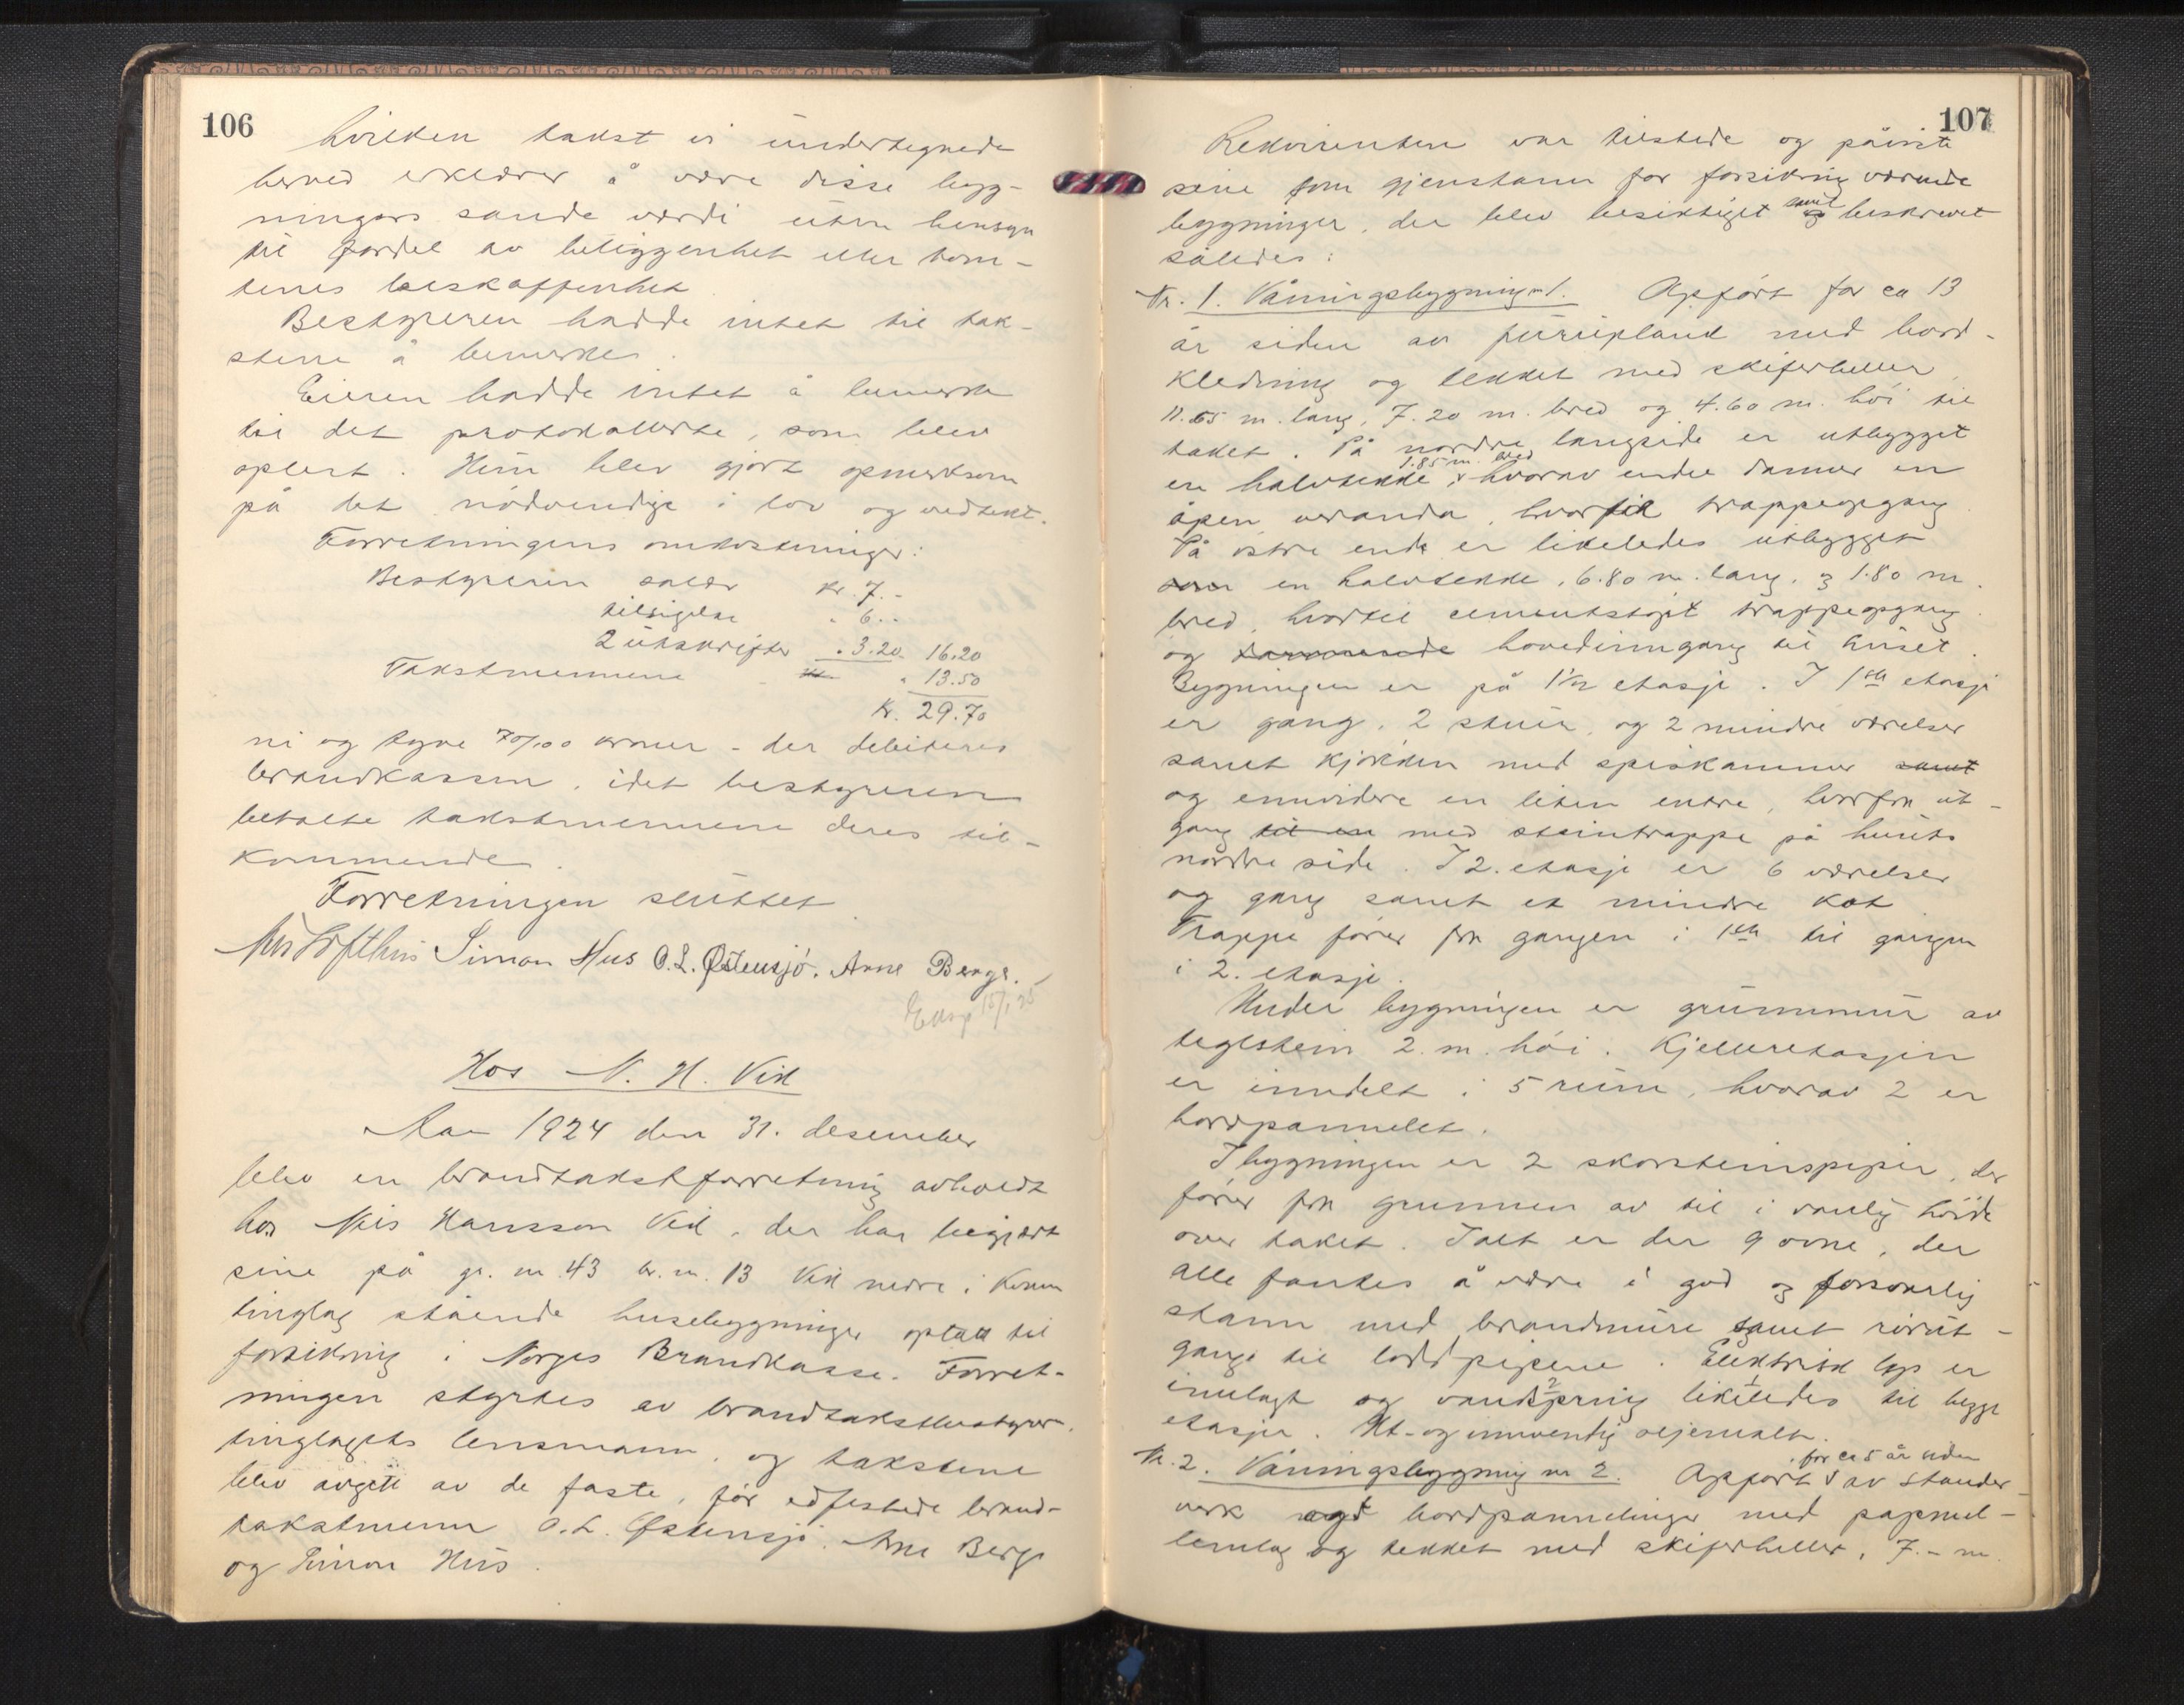 106
hvilken takst vi undertegnede
herved erklærer å være disse byg-
ningers sande værdi uten hensyn
til fordel av beliggenhet eller tom-
tenes beskaffenhet
Bestyreren hadde intet til tak-
stene å bemerke.
Eieren hadde intet å bemerke
til det protokollerte, som blev
oplest. Him blev gjort opmerksom
på det nødvendige i lov og vedtekt.
Forretningens omkostninger:
Bestyreren salær kr. 7.-
tilsigelse " 6.-
2 utskrifter " 3.20 16.20
Takstmennene " 13.50
kr. 29.70
ni og tyve 70/100 kroner - der debiteres
brandkassen, idet bestyreren
betalte takstmennene deres til-
kommende.
Forretningen sluttet.
Simon Hus O.L. Østensjö. Arne Berge.
Eksp 15/1 25
Hos N. H. Vik
Aar 1924 den 31. desember
blev en brandtakstforretning avholdt
hos Nils Hansson Vik, der har begjært
sine på gr. nr. 43 br. nr. 13 Vik nedre i Kvam
tinglag stående husebygninger optatt til
forsikring i Norges Brandkasse. Forret-
ningen styrtes av brandtakstbestyrer,
tinglagets lensmann, og takstene
blev avgitt av de faste, før edfestede brand-
takstmenn O.L. Østensjö, Arne Berge
og Simon Hus.
107
Rekvirenten var tilstede og påviste
sine som gjenstann for forsikring værende
bygninger, der blev besiktiget samt beskrevet
således:
Nr. 1. Våningsbygning nr 1. Opført for ca 13
år siden av furuplank med bord-
kledning og tekket med skiferheller,
11.65 m. lang, 7.20 m. bred og 4.60 m. høi til
taket. På nordre langside er utbygget
en halvtekke, 1.85 m. bred hvorav endel danner en
åpen veranda, hvortil trappeopgang.
På østre ende er likeledes utbygget
som en halvtekke, 6.80 m. lang, og 1.80 m.
bred, hvortil cementstøpt trappeopgang
og hovedinngang til huset.
Bygningen er på 1 1/2 etasje. I 1ste etasje
er gang, 2 stuer, og 2 mindre værelser
samt kjøkken med spiskammer samt
og ennvidere en liten entre, hvorfra ut-
gang til en med steintrappe på husets
nordre side. I 2. etasje er 6 værelser
og gang samt et mindre kot.
Trappe fører fra gangen i 1ste til gangen
i 2. etasje.
Under bygningen er grunnmur av
teglstein 2. m. høi. Kjelleretasjen
er inndelt i 5 rum, hvorav 2 er
bordpannelet.
I bygningen er 2 skorsteinspiper, der
fører fra grunnen av til i vanlig høide
over taket. Ialt er der 9 ovne, der
alle fantes å være i god og forsvarlig
stann med brandmure samt rørut-
gange til loddpipene. Elektrisk lys er
innlagt og vandspring likeledes til begge
etasjer. Ut- og innvendig oljemalt.
Nr. 2. Våningsbygning nr 2. Opført for ca 5 år siden av stender-
verk bordpannelinger med papmel-
lemlag og tekket med skiferheller, 7.- m.